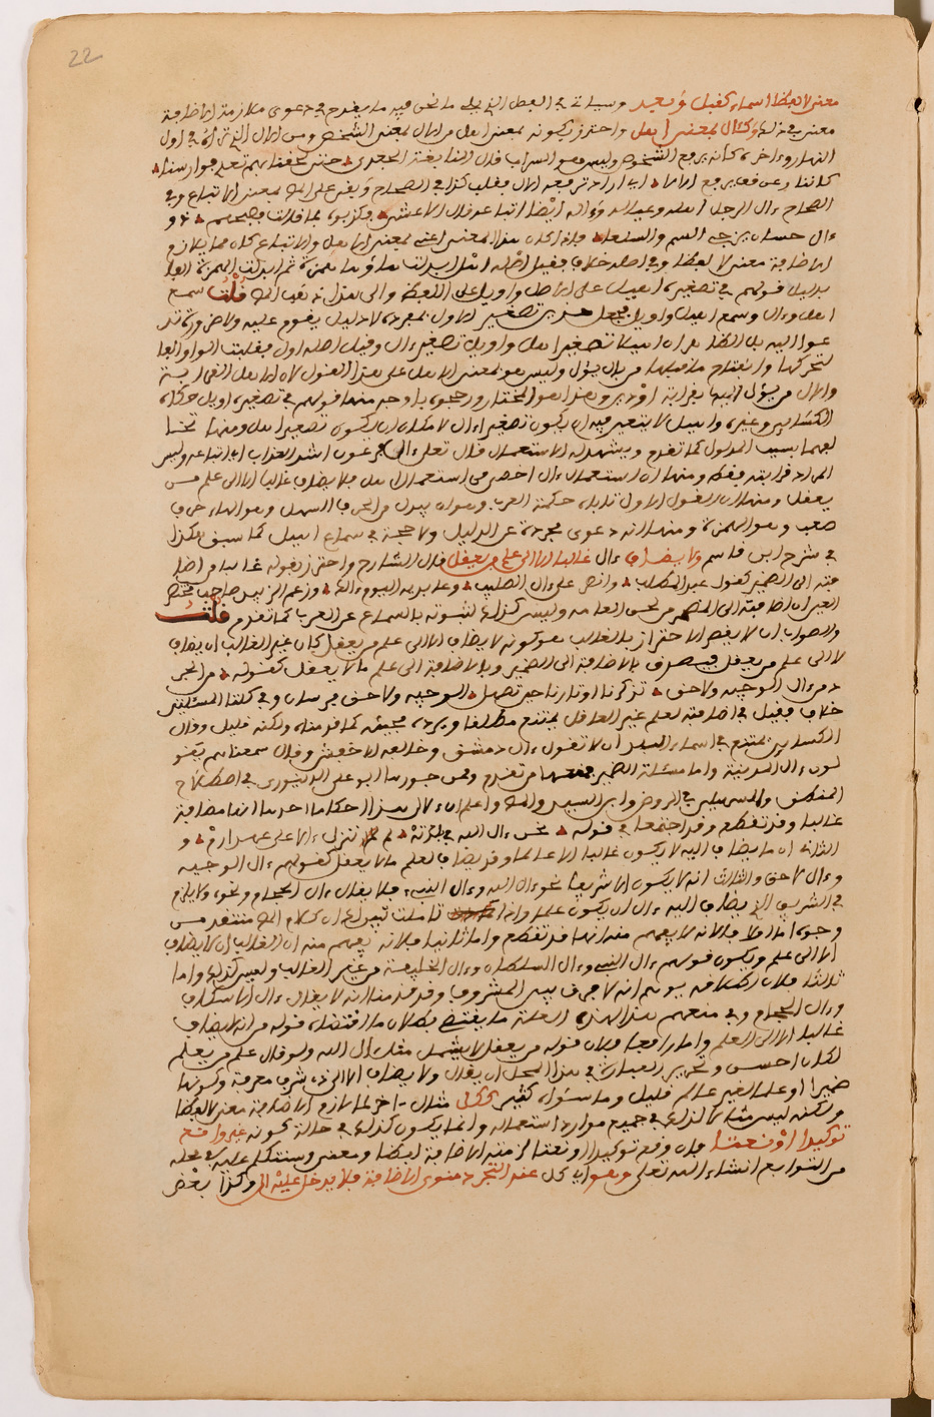 22
معنى لا لفظا اسماء كقبل وبعد وسياتي في الفصل الذي يلي ما نحن فيه ما يقدح في دعوى ملازمة الاضافة
معنى في ذلك وكال بمعنى اهل واحترز بكونه بمعنى اهل من الال بمعنى الشخص ومن الال الذي تراه في اول
النهار واخره كانه يرفع الشخوص وليس هو السراب قال النابغة الجعدي حتى لحقنا بهم تعدى فوارسنا
كاننا رعن قف يرفع الالا اي اراد يرفعه الال فقلب كذا في الصحاح وبقي على المص بمعنى الاتباع وفي
الصحاح ءال الرجل اهله وعياله وءاله ايضا اتباعه قال الاعشى فكذبوها بما قالت فصبحهم ذو
ءال حسان يزجي السم والسلعا فاذا كان هذا المعنى اعني بمعنى الاهل والاتباع كان مما يلازم
الاضافة معنى لا لفظا وفي اصله خلاف فقيل اصله اهل ابدلت هاؤه همزة ثم ابدلت الهمزة الفا
بدليل قولهم في تصغيره اهيل على الاصل واويل على اللفظ والى هذا ذهب المص قلت سمع
اهل وءال وسمع اهيل واويل فجعل هذين تصغير الاول بمجرده لا دليل يقوم عليه ولا ضرورة تد
عوا اليه بل الظاهر ان اهيلا تصغير اهل واويل تصغير ءال وقيل اصله اول فقلبت الواو الفا
لتحركها وانفتاح ما قبلها من ءال يؤول وليس هو بمعنى الاهل على هذا القول لان الاهل القرابة
والال من يؤول اليها بقرابة او دين وهذا هو المختار ورجحوه باوجه منها قولهم في تصغيره اويل حكاه
الكسائي وغيره واهيل لا يتعين فيه ان يكون تصغيرا لال لامكان ان يكون تصغير اهل ومنها تخا
لفهما بسبب المدلول كما تقدم ويشهد له الاستعمال قال تعلى ءال فرعون اشد العذاب اي اتباعه وليس
المراد قرابته فقط ومنها ان استعمال ءال اخص من استعمال اهل فلا يضاف غالبا الا الى علم من
يعقل ومنها ان القول الاول تاباه حكمة العرب وهو ان يبدل من الحرف السهل وهو الهاء حرف
صعب وهو الهمزة ومنها انه دعوى مجردة عن الدليل ولا حجة في سماع اهيل كما سبق هكذا
في شرح ابن قاسم ولا يضاف ءال غالبا الا الى علم من يعقل قال الشارح واحترز بقوله غالبا من اضا
فته الى الضمير كقول عبد المطلب وانصر على ءال الصليب وعابديه اليوم ءالك وزعم الزبيدي صاحب مختصر
العين ان اضافته الى المضمر من لحن العامة وليس كذلك لثبوته بالسماع عن العرب كما تقدم قلت
والصواب ان لا يقصر الاحتراز بالغالب هو كونه لا يضاف الا الى علم من يعقل كان غير الغالب ان يضاف
لا الى علم من يعقل فيصدق بالاضافة الى الضمير وبالاضافة الى علم ما لا يعقل كقوله من الجر
د من ءال الوجيه ولاحق تذكرنا اوتارنا حين تصهل الوجيه ولاحق فرسان وفي كلتا المسئلتين
خلاف فقيل في اضافته لعلم غير العاقل يمتنع مطلقا ويرده مجيئه كما قدمناه ولكنه قليل وقال
الكسائي يمتنع في اسماء البلدان لا تقول ءال دمشق وخالفه الاخفش وقال سمعناهم يقو
لون ءال المدينة واما مسئلة الضمير فمنعها من تقدم وممن جوزها ابو علي الدينوري في اصطلاح
المنطق والسهيلي في الروض وابن السيد والمص واعلم ان ءال هذا احكاما احدها انها مضافة
غالبا وقد تقطع وقد اجتمعا في قوله نحن ءال الله في بلدتنا لم نزل ءالا على عهد ارم و
الثاني ان ما يضاف اليه لا يكون غالبا الا عالما وقد يضاف لعلم ما لا يعقل كقولهم ءال الوجيه
وءال لاحق والثالث انه لا يكون الا شريفا نحو ءال الله وءال النبي فلا يقال ءال الحجام ونحوه ولا يلزم
في الشريف الذي يضاف اليه ءال ان يكون علما واذا تاملت تبين لك ان كلام المص منتقد من
وجوه اما اولا فلانه لا يفهم منه انها قد تقطع واما ثانيا فلانه يفهم منه ان الغالب ان لا يضاف
الا الى علم ويكون قولهم ءال النبي وءال السلطان وءال الخليفة من غير الغالب وليس كذلك واما
ثالثا فلان اطلاقه يوهم انه لا فرق بين المشروف وقد قدمنا انه لا يقال ءال الاسكاف
وءال الحجام وفي منعهم هذا لهذه العلة ما يقتضي بطلان ما اقتضاه قوله من انه لا يضاف
غالبا الا الى العلم واما رابعا فلان قوله من يعقل لا يشمل مثل ءال الله ولو قال علم من يعلم
لكان احسن وتحرير العبارة في هذا المحل ان يقال ولا يضاف الا الى ذي شرف معرفة وكونها
ضميرا او علما لغير عالم قليل وما سواه كثير ككل مثال ءاخر لما لازم الاضافة معنى لا لفظا
ولكنه ليس مثالا لذلك في جميع موارد استعماله وانما يكون كذلك في حالة كونه غير واقع
توكيدا او نعتا فان وقع توكيدا او نعتا لزمته الاضافة لفظا ومعنى وسنتكلم عليه في محله
من التوابع انشاء الله تعلى وهو اي كل عند التجرد منوى الاضافة فلا يدخل عليه ال وكذا بعض